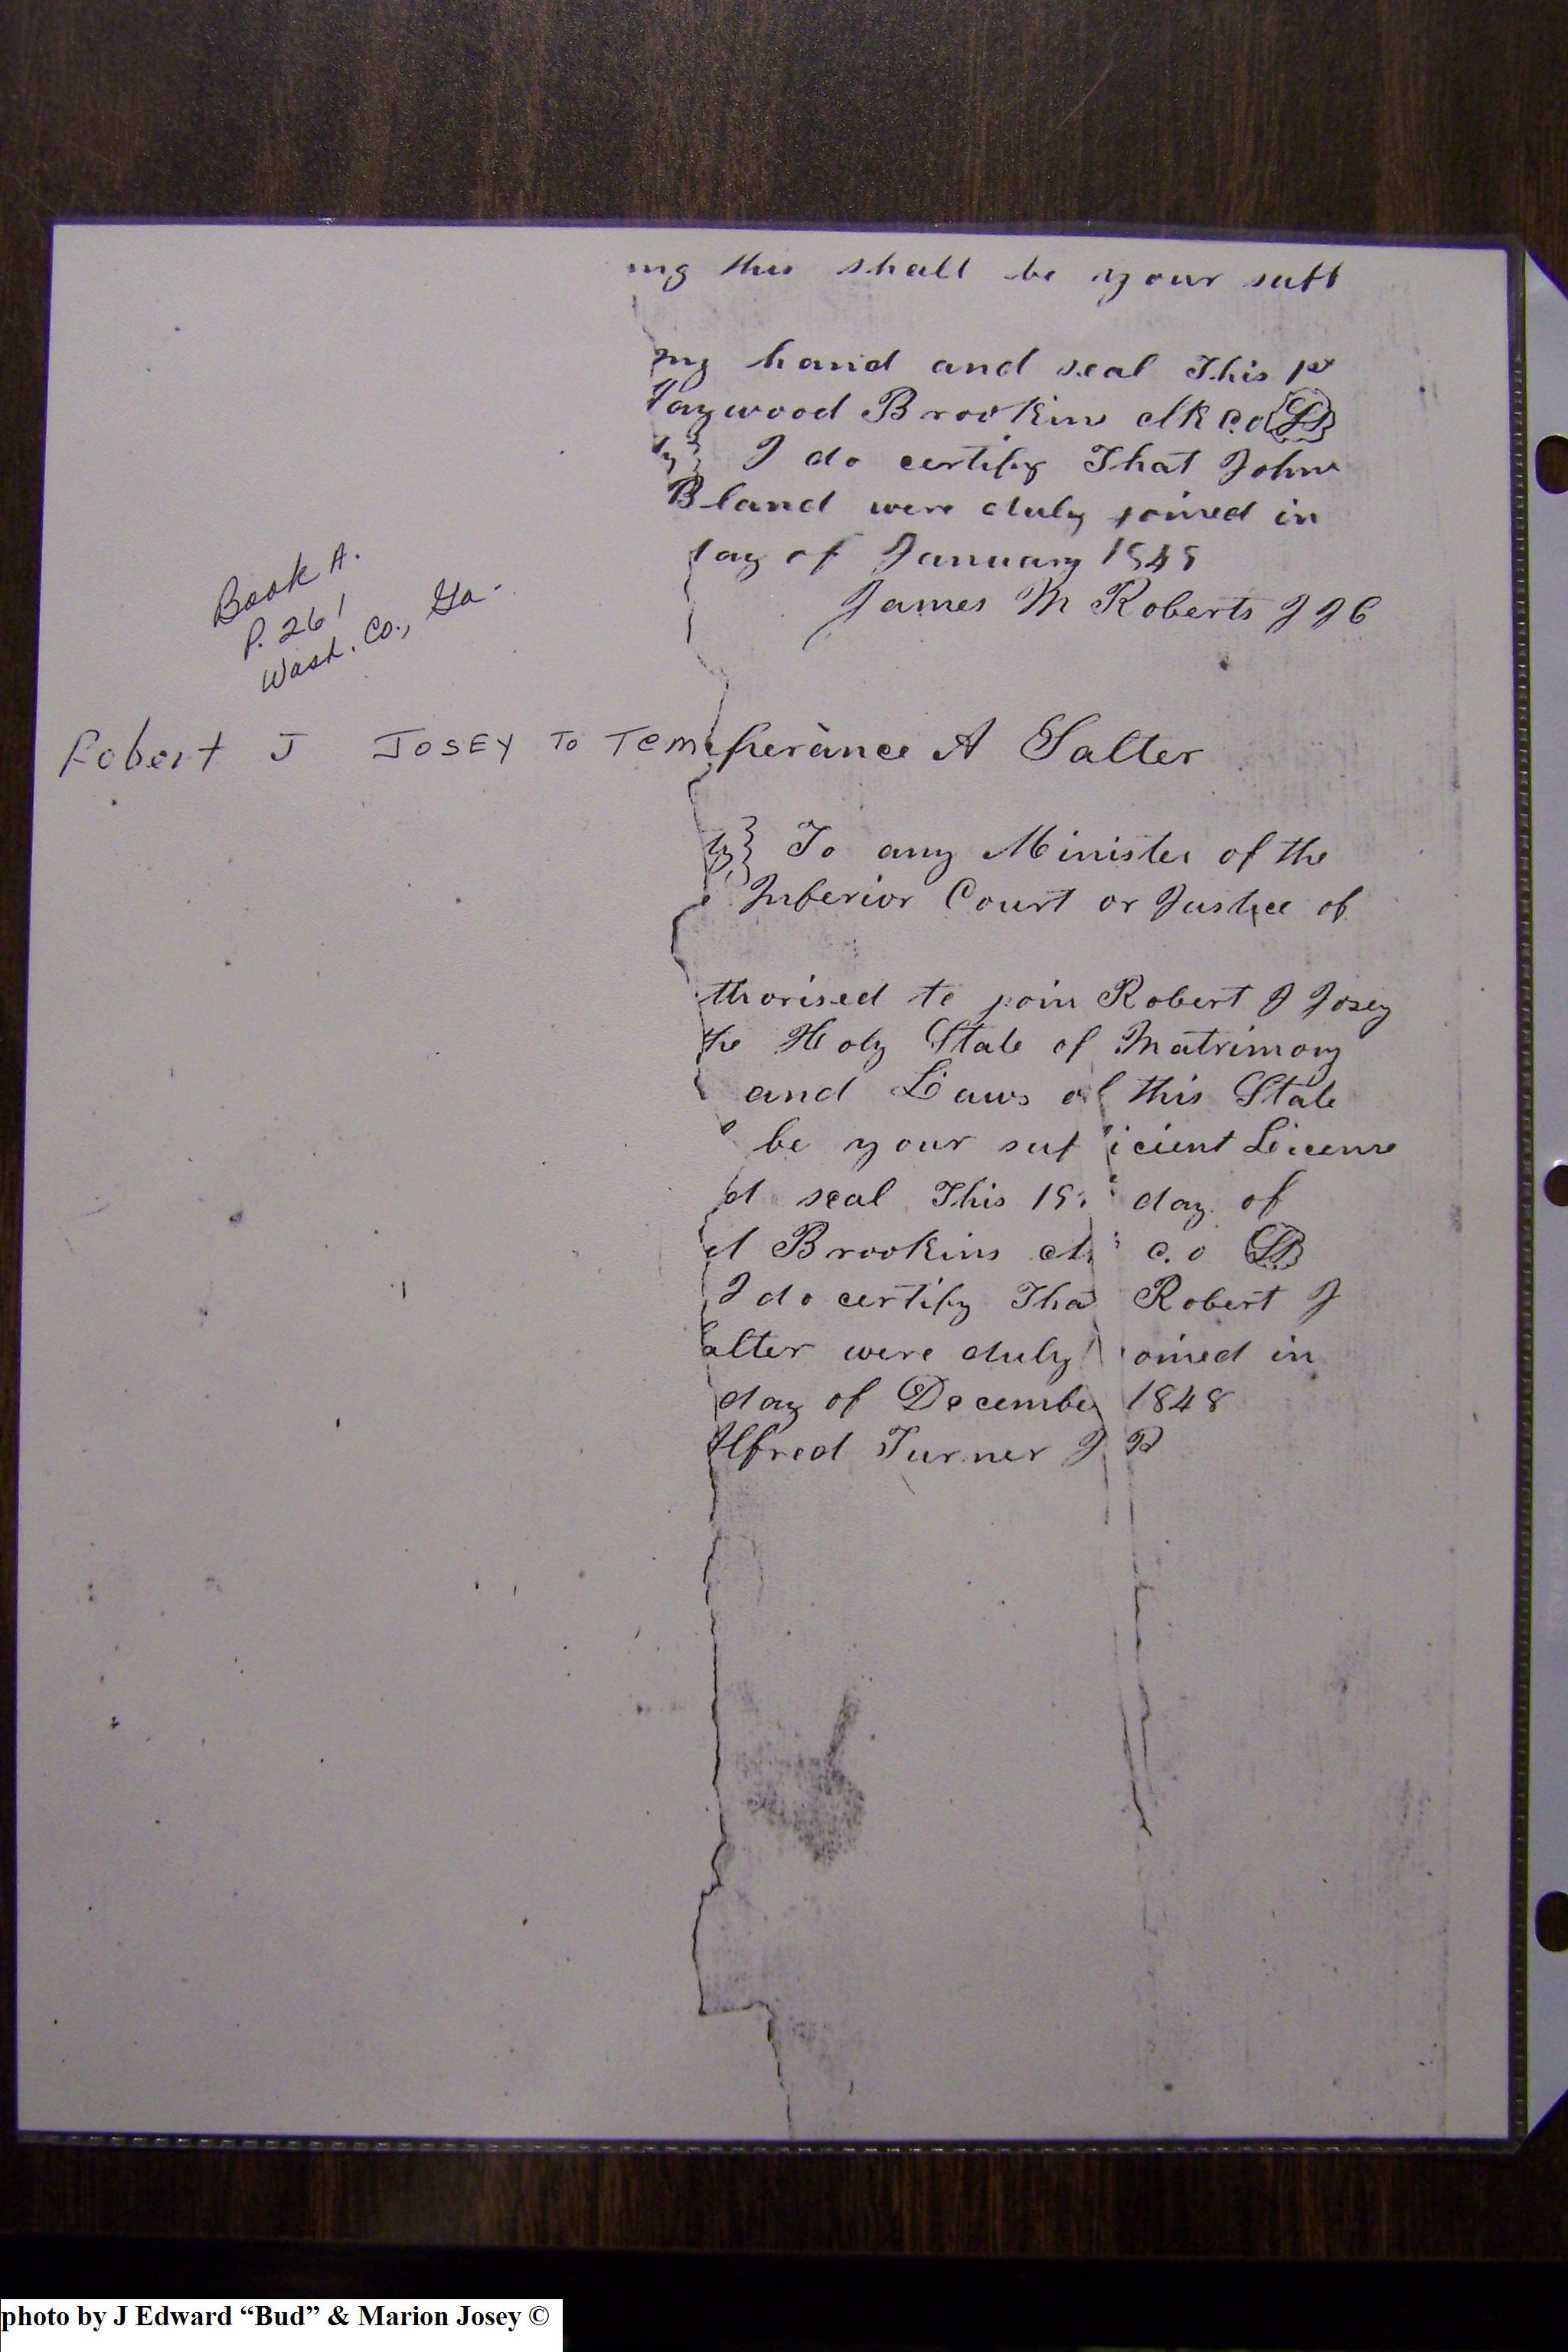 ing this shall be your suff
my hand and seal This 1st
Haywood Brookins clk c.o LS
ty} I do certify That John
Bland were duly joined in
day of January 1849
James M Roberts J I C
Book A.
P. 261
Wash. Co., Ga.
Robert J JOSEY TO Temperance A Salter
ty} To any Minister of the
Inferior Court or Justice of
thorised to join Robert J Josey
the Holy State of Matrimony
and Laws of this State
be your suf icient License
d seal This 19 day of
d Brookins cl c.o LS
I do certify Tha Robert J
Salter were duly oined in
day of Decembe 1848
Alfred Turner J P
photo by J Edward “Bud” & Marion Josey ©